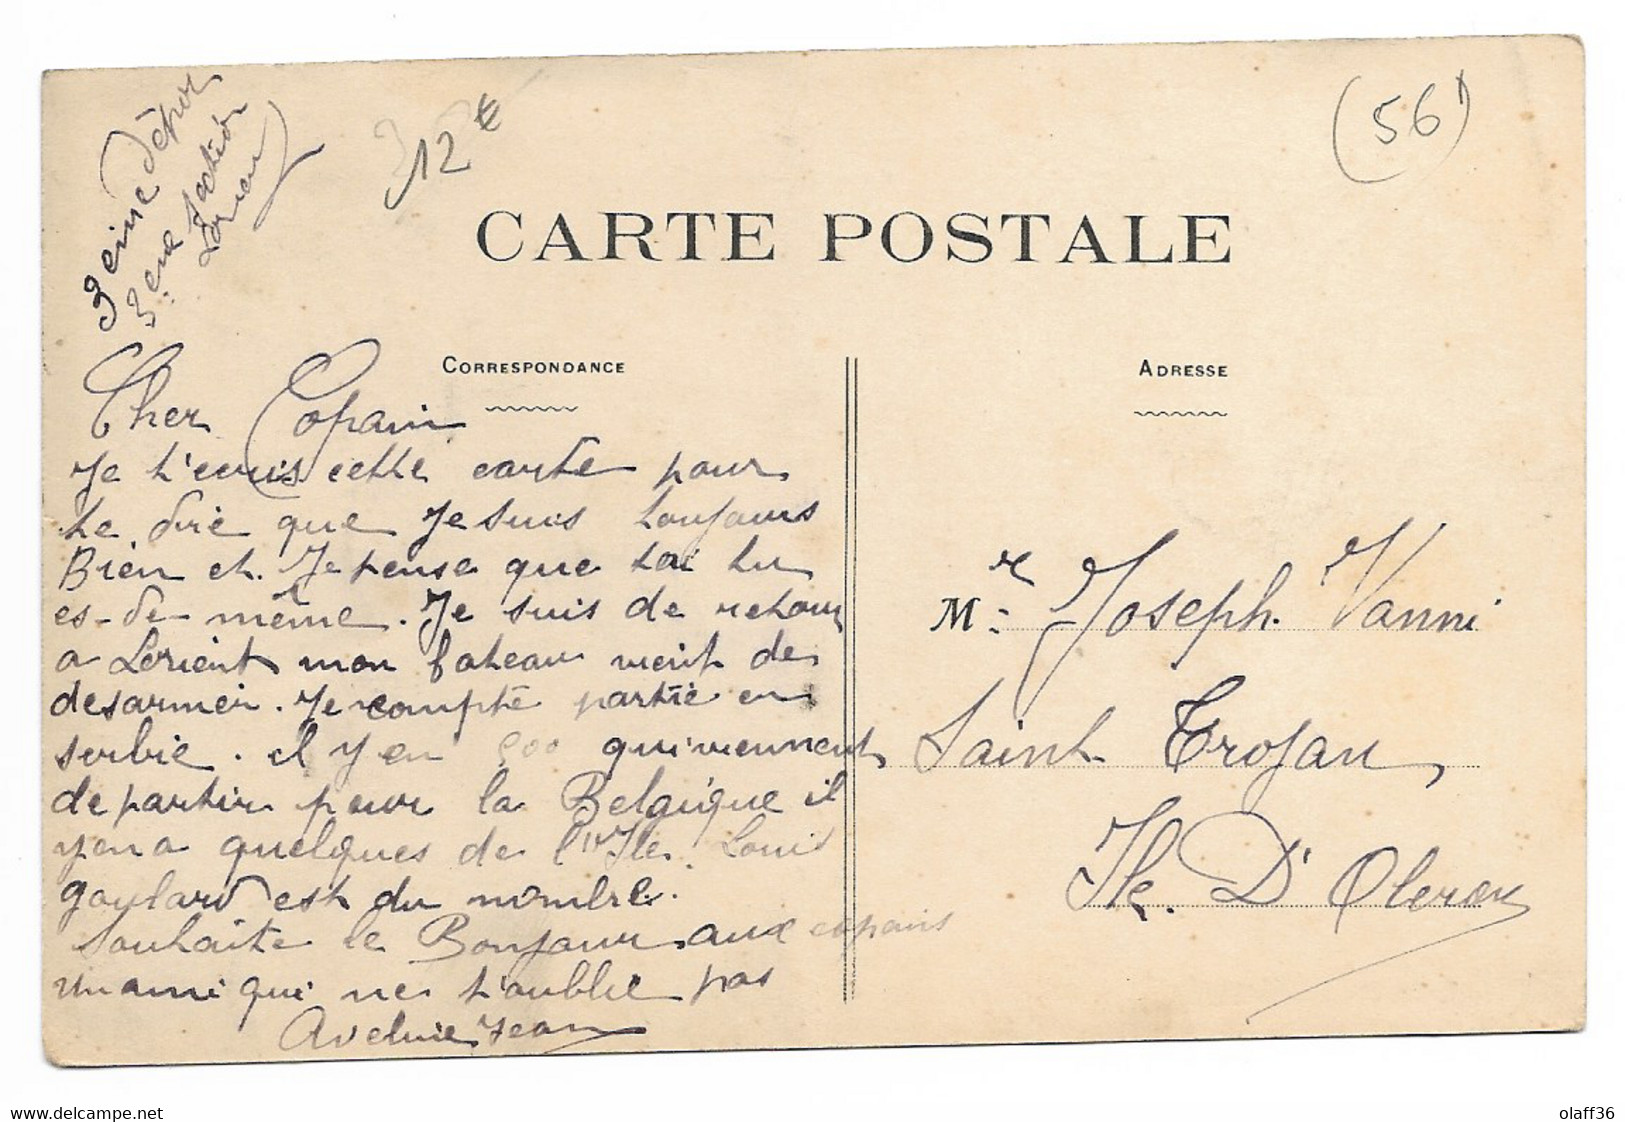 3 eime dépot
3 eme section
Lorient
12 €
(56)
CARTE POSTALE
CORRESPONDANCE
ADRESSE
Cher Copain
Je t'ecris cette carte pour
te dire que Je suis toujours
Bien et. Je pense que toi tu
es-de même. Je suis de retour
a Lorient mon bateau vient de
desarmer. Je compte partie en
serbie. il y en 500 qui viennent
de partir pour la Belgique il
yena quelques de l'Ile. Louis
goulard est du nombre.
Souhaite le Bonjour aux copains
un ami qui ne t'oublie pas
Jean
Mr Joseph Vanni
Saint Trojan
Ile. D'Oleron
delcampe.net
olaff36